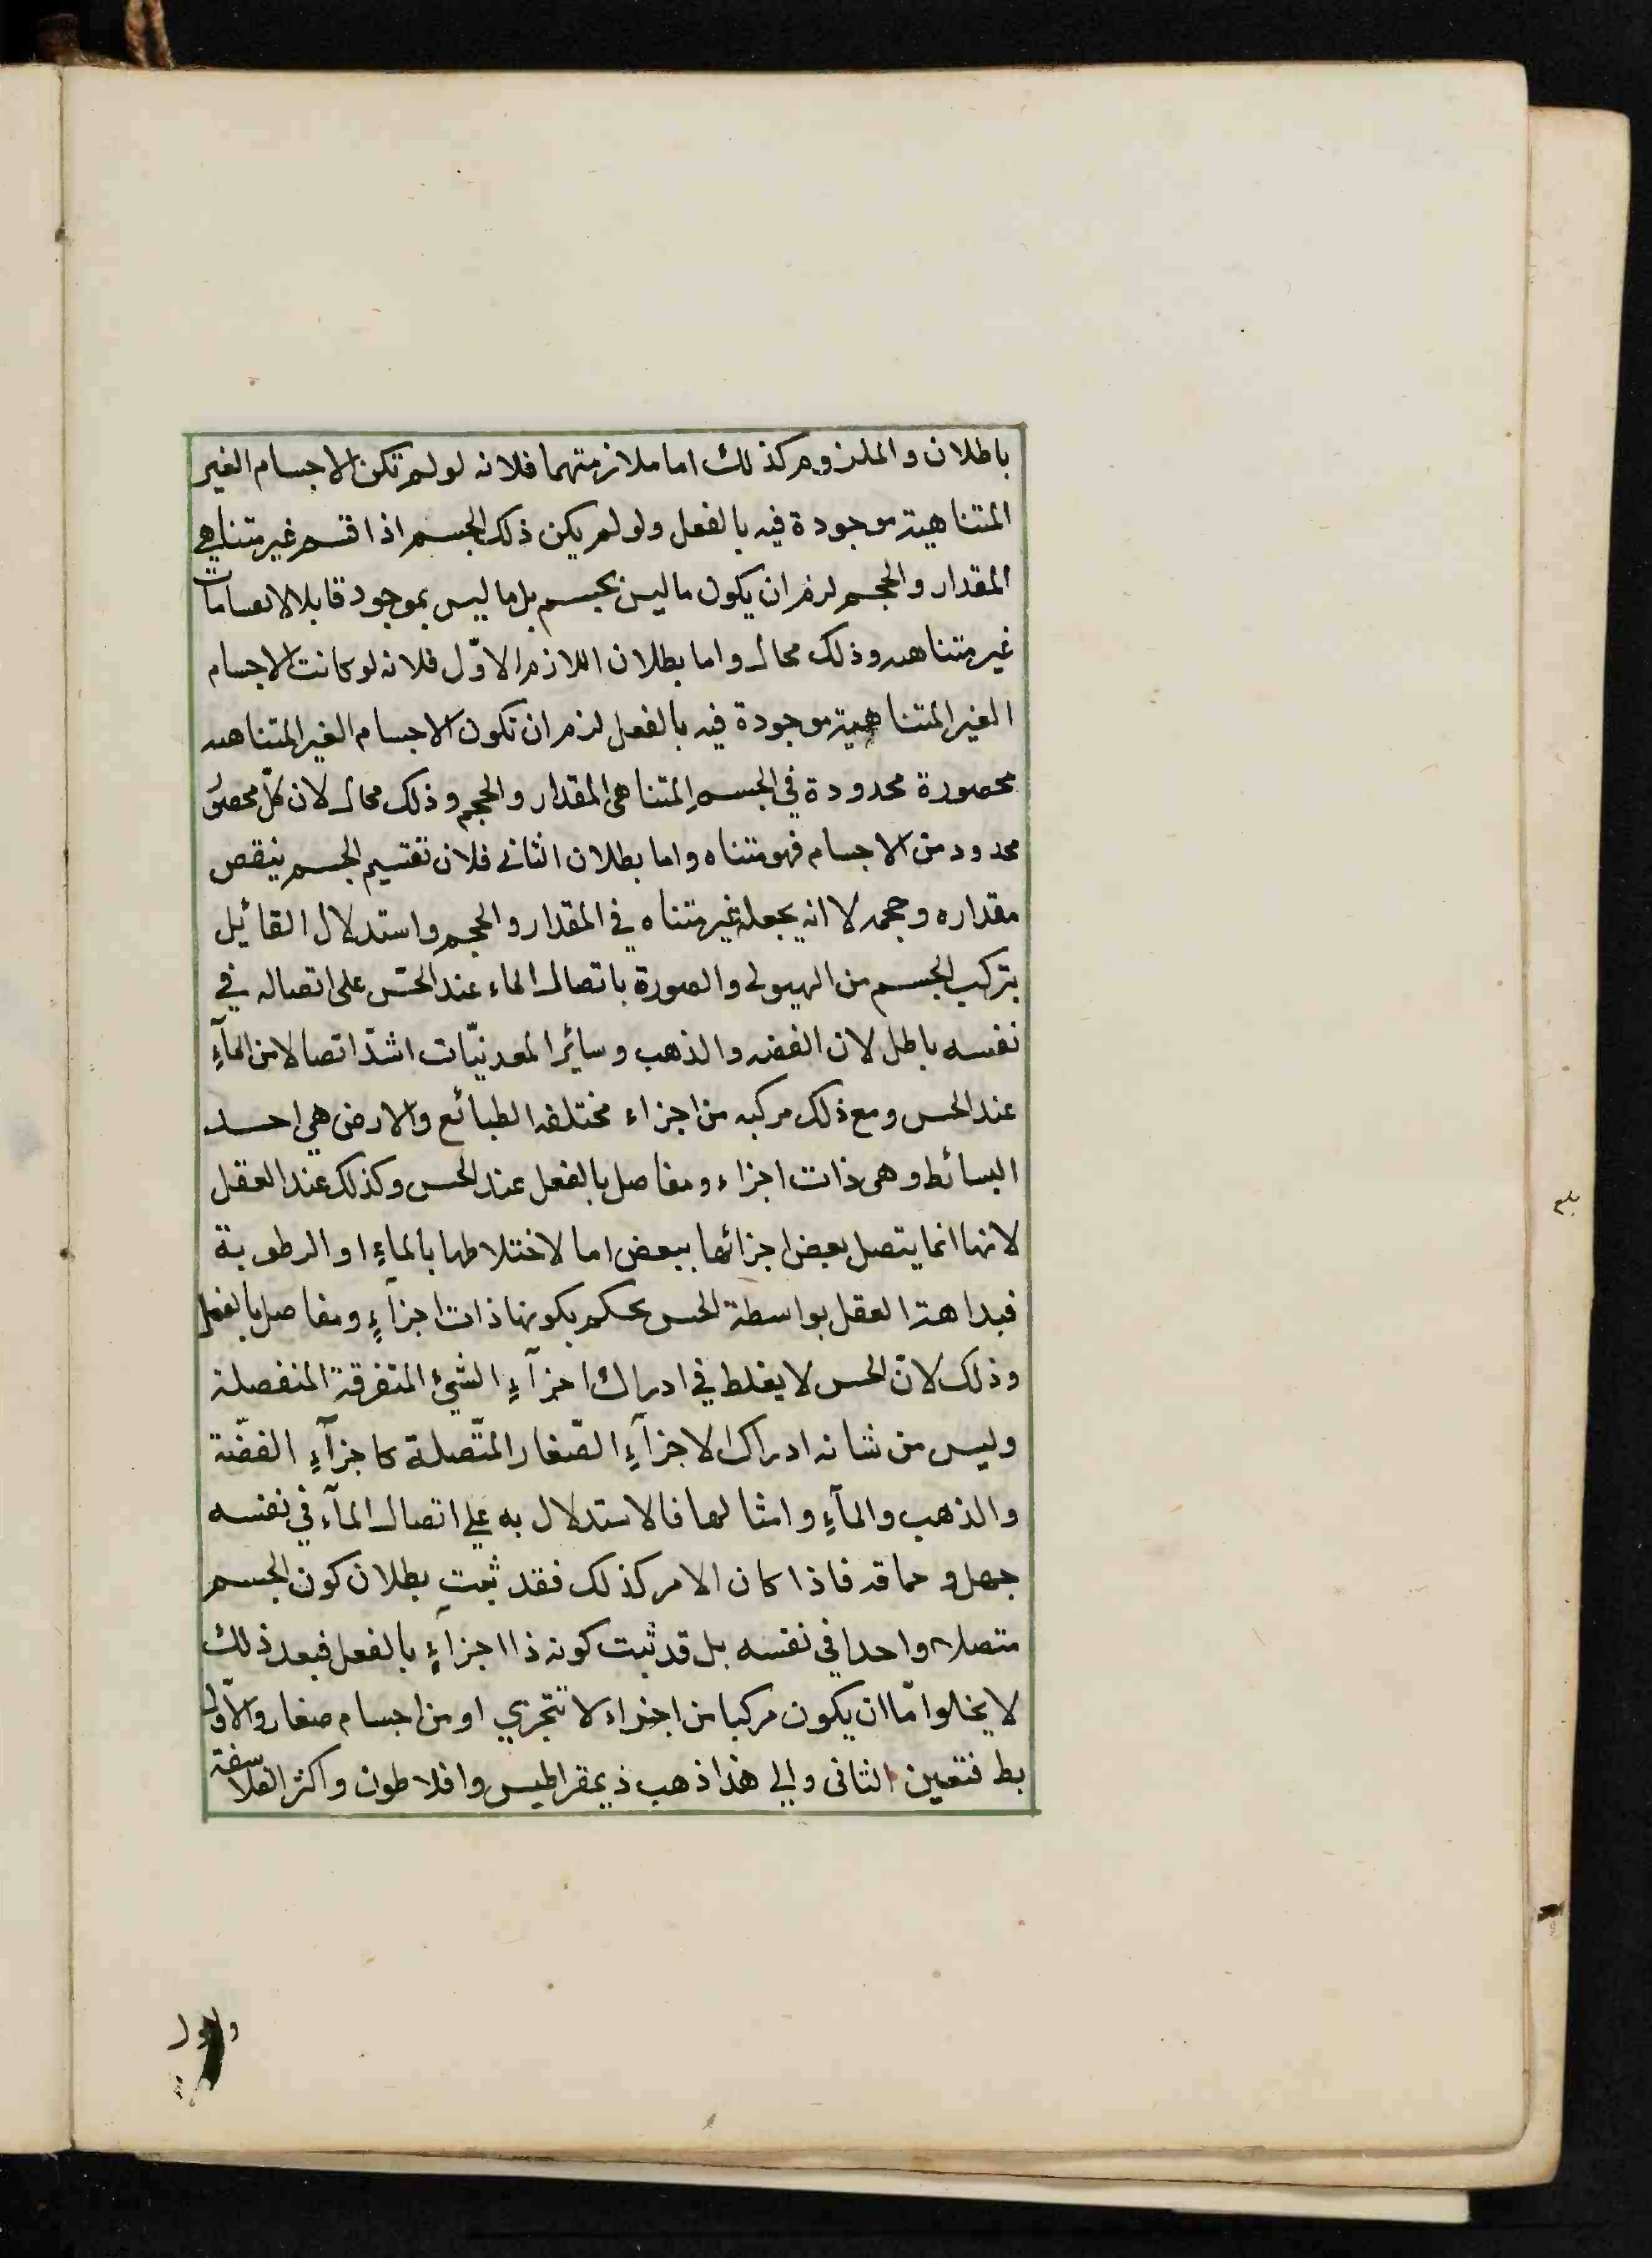 باطلان والملزوم كذلك اما ملازمتهما فلانه لو لم تكن الاجسام الغير
المتناهية موجودة فيه بالفعل ولو لم يكن ذلك الجسم اذا قسم غير متناهي
المقدار والحجم لزم ان يكون ما ليس بجسم بل ما ليس بموجود قابلا لانقسامات
غير متناهيه وذلك محال واما بطلان اللازم الاوّل فلانه لو كانت الاجسام
الغير المتناهية موجودة فيه بالفعل لزم ان تكون الاجسام الغير المتناهيه
محصورة محدودة في الجسم المتناهى المقدار والحجم وذلك محال لان كلّ محصور
محدود من الاجسام فهو متناه واما بطلان الثانى فلان تقسيم الجسم ينقص
مقداره وحجمه لا انه يجعله غير متناه في المقدار والحجم واستدلال القائيل
بتركب الجسم من الهيولى والصورة باتصال الماء عند الحسّ على اتصاله في
نفسه باطل لان الفضه والذهب وسائر المعدنيّات اشدّ اتصالا من المآءِ
عند الحس ومع ذلك مركبه من اجزاء مختلفه الطبائع والارض هي احد
البسائط وهى ذات اجزاء ومفاصل بالفعل عند الحس وكذلك عند العقل
لانها انما يتصل بعض اجزائها ببعض اما لاختلاطها بالماءِ او الرطوبة
فبداهة العقل بواسطة الحس يحكم بكونها ذات اجزآءٍ ومفاصل بالفعل
وذلك لانّ الحس لا يغلط في ادراك اجزآءِ الشيئ المتفرقة المنفصلة
وليس من شانه ادراك الاجزآءِ الصّغار المتّصلة كاجزآءِ الفضّة
والذهب والمآءِ وامثالها فالاستدلال به على اتصال المآء في نفسه
جهل وحماقه فاذا كان الامر كذلك فقد ثبت بطلان كون الجسم
متصلا واحدا في نفسه بل قد ثبت كونه ذا اجزآءٍ بالفعل فبعد ذلك
لا يخلوا امّا ان يكون مركبا من اجزاء لا تتجزي او من اجسام صغار والاوّل
بط فتعين الثانى والي هذا ذهب ذيمقراطيس وافلاطون واكثر الفلاسفة